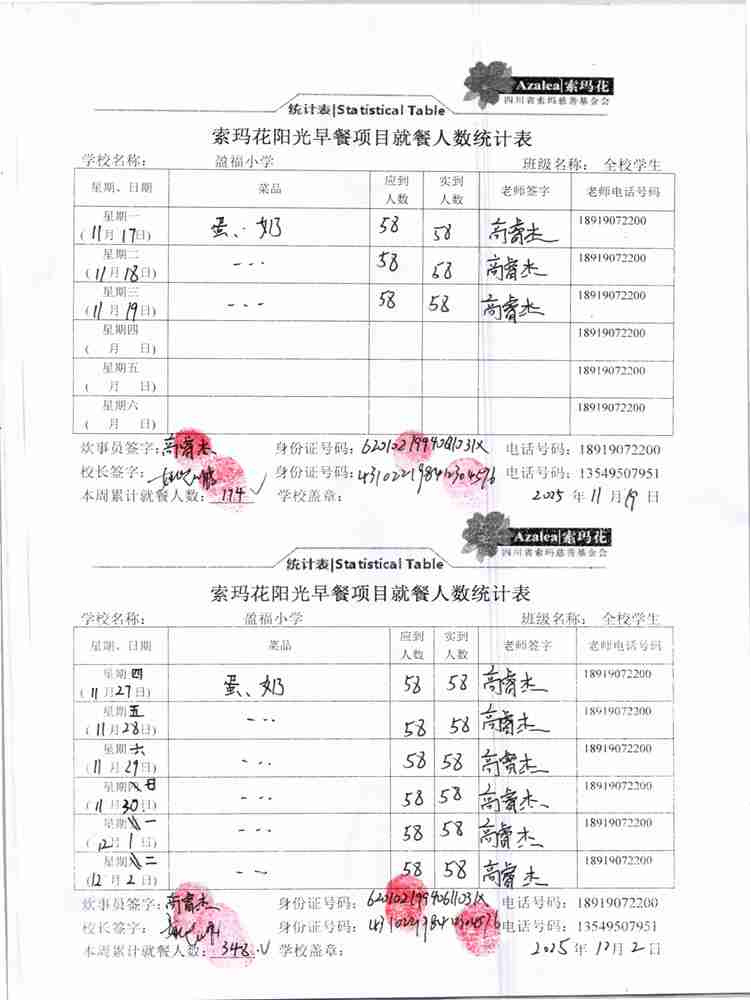 Azalea|索玛花
四川省索玛慈善基金会
统计表|Statistical Table
索玛花阳光早餐项目就餐人数统计表
学校名称: 盈福小学 班级名称: 全校学生
星期、日期 菜品 应到人数 实到人数 老师签字 老师电话号码
星期一 (11月17日) 蛋、奶 58 58 高睿杰 18919072200
星期二 (11月18日) --- 58 58 高睿杰 18919072200
星期三 (11月19日) --- 58 58 高睿杰 18919072200
星期四 ( 月 日) 18919072200
星期五 ( 月 日) 18919072200
星期六 ( 月 日) 18919072200
炊事员签字: 高睿杰 身份证号码: 电话号码: 18919072200
校长签字: 身份证号码: 431022198412304576 电话号码: 13549507951
本周累计就餐人数: 174 √ 学校盖章: 2025 年 11 月 19 日
Azalea|索玛花
四川省索玛慈善基金会
统计表|Statistical Table
索玛花阳光早餐项目就餐人数统计表
学校名称: 盈福小学 班级名称: 全校学生
星期、日期 菜品 应到人数 实到人数 老师签字 老师电话号码
星期四 (11月27日) 蛋、奶 58 58 高睿杰 18919072200
星期五 (11月28日) --- 58 58 高睿杰 18919072200
星期六 (11月29日) --- 58 58 高睿杰 18919072200
星期日 (11月30日) --- 58 58 高睿杰 18919072200
星期一 (12月1日) --- 58 58 高睿杰 18919072200
星期二 (12月2日) -- 58 58 高睿杰 18919072200
炊事员签字: 高睿杰 身份证号码: 电话号码: 18919072200
校长签字: 身份证号码: 431022198412304576 电话号码: 13549507951
本周累计就餐人数: 348 √ 学校盖章: 2025 年 12 月 2 日